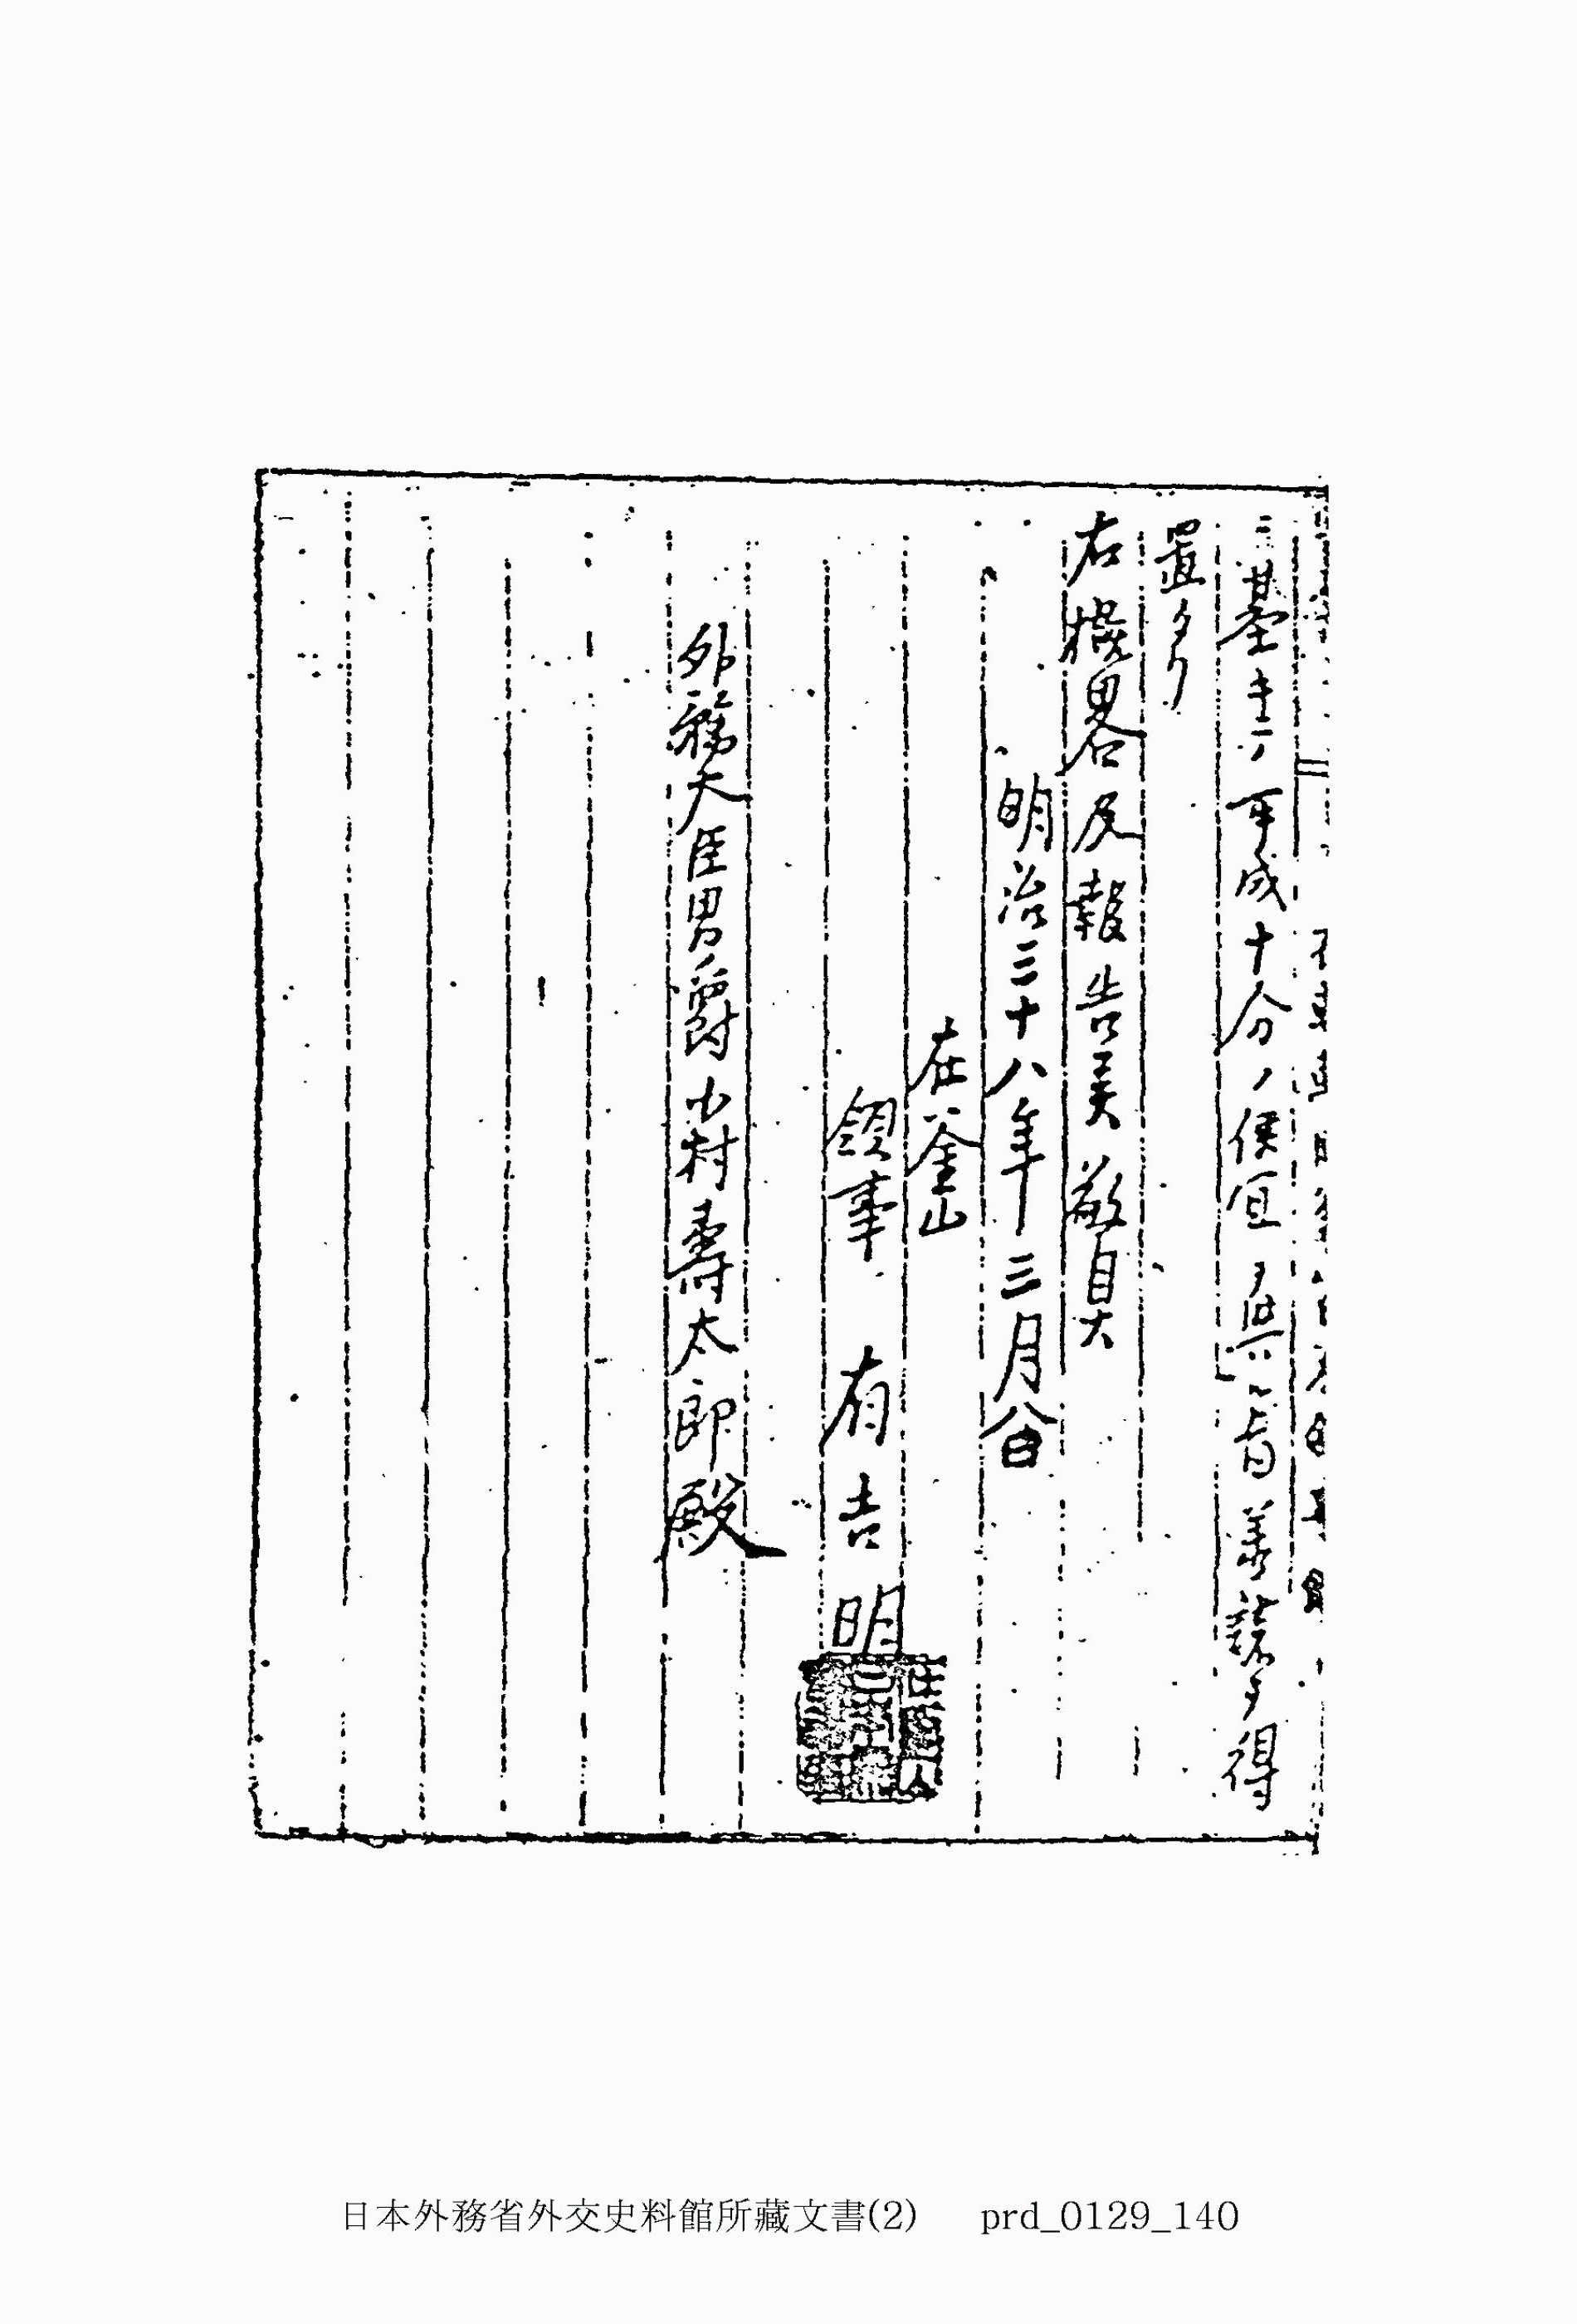 ニ基キテ可成十分ノ便宜ヲ與フ旨承諾ヲ得
置タリ
右概畧及報告候敬具
明治三十八年三月八日
在釜山
領事 有吉明
外務大臣男爵小村壽太郎殿
日本外務省外交史料館所藏文書(2) prd_0129_140